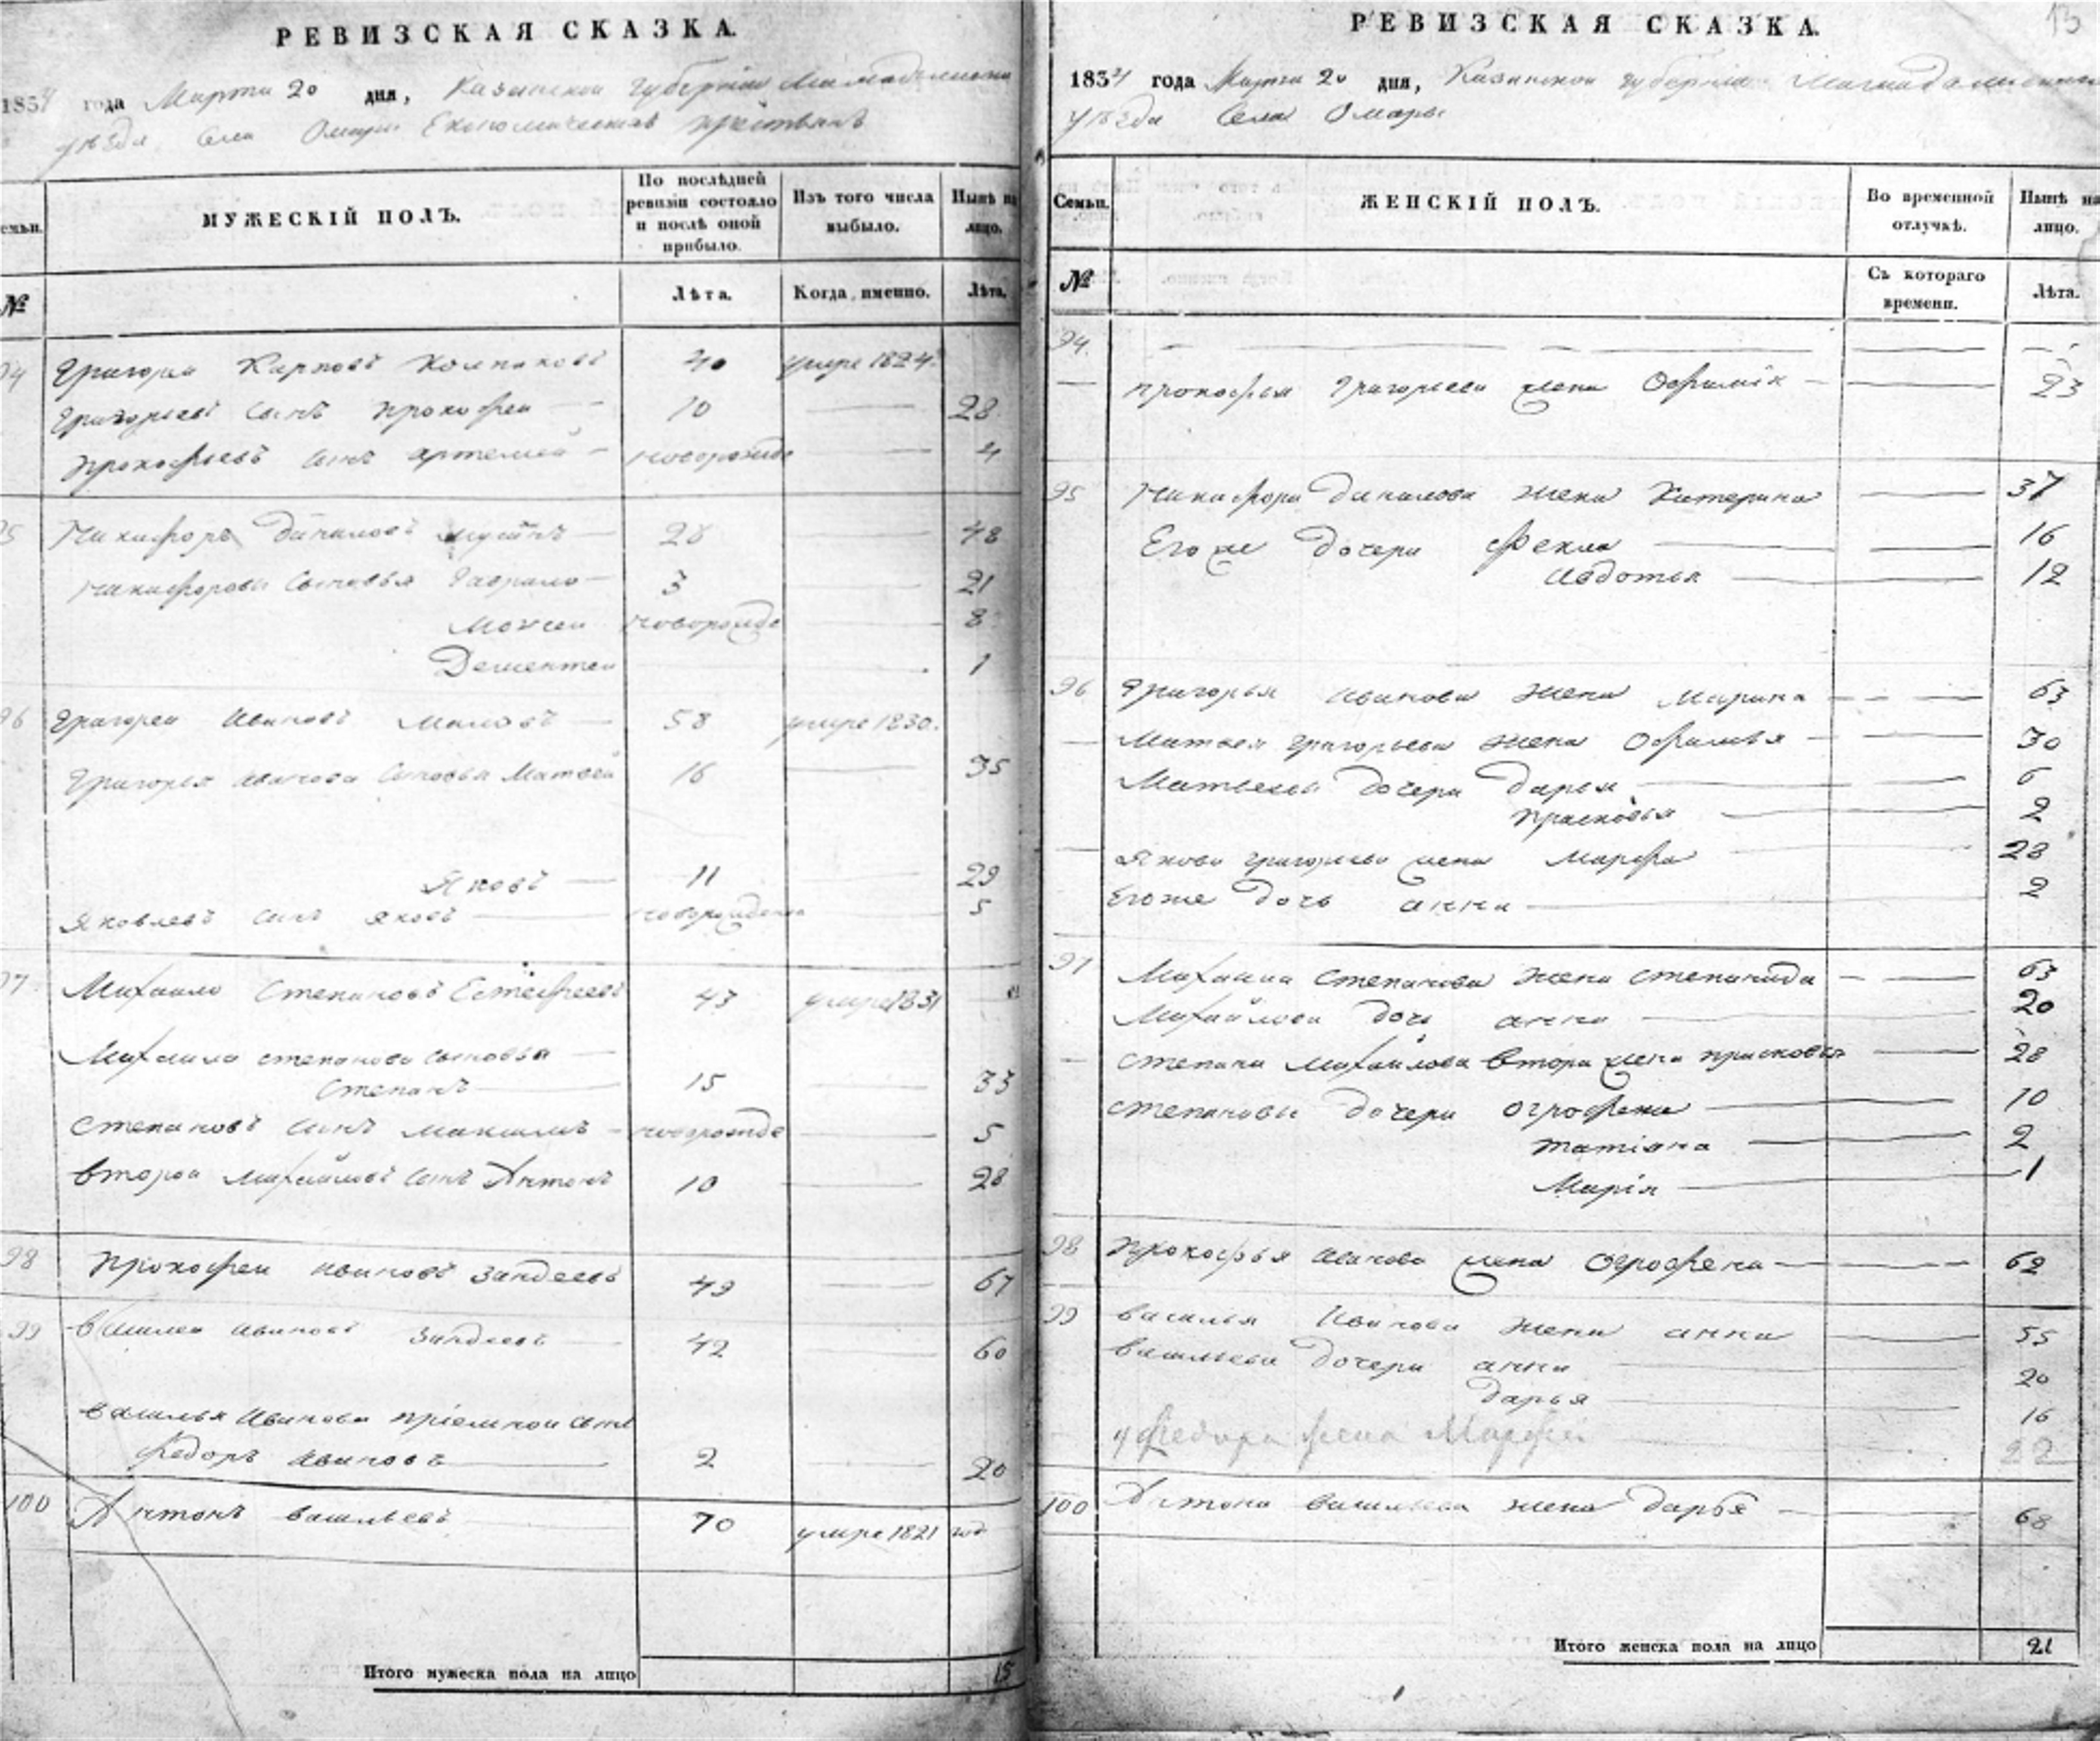 РЕВИЗСКАЯ СКАЗКА.
1834 года Марта 20 дня, Казанской губернии Мамадышскаго
уѣзда села Омары Економическихъ крестьянъ
Семьи.
МУЖЕСКІЙ ПОЛЪ.
По послѣдней ревизіи состояло и послѣ оной прибыло.
Изъ того числа выбыло.
Нынѣ на лицо.
№
Лѣта.
Когда именно.
Лѣта.
94 Григорей Карповъ Колпаковъ 40 умре 1824.
Григорьевъ сынъ Прокофеи 10 28
Прокофьевъ сынъ Артемеи новорожде 4
95 Никифоръ Даниловъ 28 48
Никифоровы сыновья Гаврило 3 21
Мокеи новорожде 8
Дементеи 1
96 Григореи Ивановъ Миловъ 58 умре 1830.
Григорья Иванова сыновья Матвеи 16 35
Яковъ 11 29
Яковлевъ сынъ Яковъ новорожденои 5
97 Михаило Степановъ Естефеевъ 43 умре 1831
Михаила Степанова сыновья
Степанъ 15 33
Степановъ сынъ Максимъ новорожде 5
Второи Михаиловъ сынъ Антонъ 10 28
98 Прокофеи Ивановъ Зандеевъ 49 67
99 Василеи Ивановъ Зандеевъ 42 60
Василья Иванова пріемнои сынъ
Федоръ Ивановъ 2 20
100 Антонъ Васильевъ 70 умре 1821 год
Итого мужеска пола на лицо 15
13
РЕВИЗСКАЯ СКАЗКА.
1834 года Марта 20 дня, Казанской губерніи Мамадышскаго
уѣзда села Омары
Семьи.
ЖЕНСКІЙ ПОЛЪ.
Во временной отлучкѣ.
Нынѣ на лицо.
№
Съ котораго времени.
Лѣта.
94.
Прокофья Григорьева жена Офимія 23
95 Никифора Данилова жена Катерина 37
Егоже дочери Фекла 16
Авдотья 12
96 Григорья Иванова жена Марина 63
Матвея Григорьева жена Офимья 30
Матвеевы дочери Дарья 6
Прасковья 2
Якова Григорьева жена Марфа 28
Егоже дочь Анна 2
97 Михаила Степанова жена Степанида 63
Михаилова дочь Анна 20
Степана Михаилова втора жена Прасковья 28
Степановы дочери Огрофена 10
Татіяна 2
Марія 1
98 Прокофья Иванова жена Огрофена 62
99 Василья Иванова жена Анна 55
Васильева дочери Анна 20
Дарья 16
у Федора жена Марфа 22
100 Антона Васильева жена Дарья 68
Итого женска пола на лицо 21